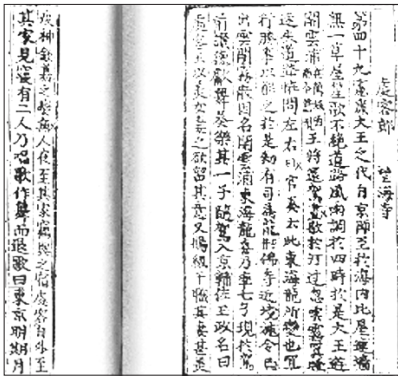 處容郎 望海寺
第四十九憲康大王之代自京師至於海內比屋連墻
無一草屋笙歌不絶道路風雨調於四時於是大王遊
開雲浦王將還駕晝歇於汀过忽雲霧冥曀
迷失道路怪問左右日官奏云此東海龍所變也宜
行勝事以解之於是勑有司爲龍刱佛寺近境施令已
出雲開霧散因名開雲浦東海龍喜乃率七子現於駕
前讚德獻舞奏樂其一子隨駕入京輔佐王政名曰
處容王以美女妻之欲留其意又賜級干職其妻甚美
疫神欽慕之變無人夜至其家竊與之宿處容自外至
其家見寢有二人乃唱歌作舞而退歌曰東京明期月